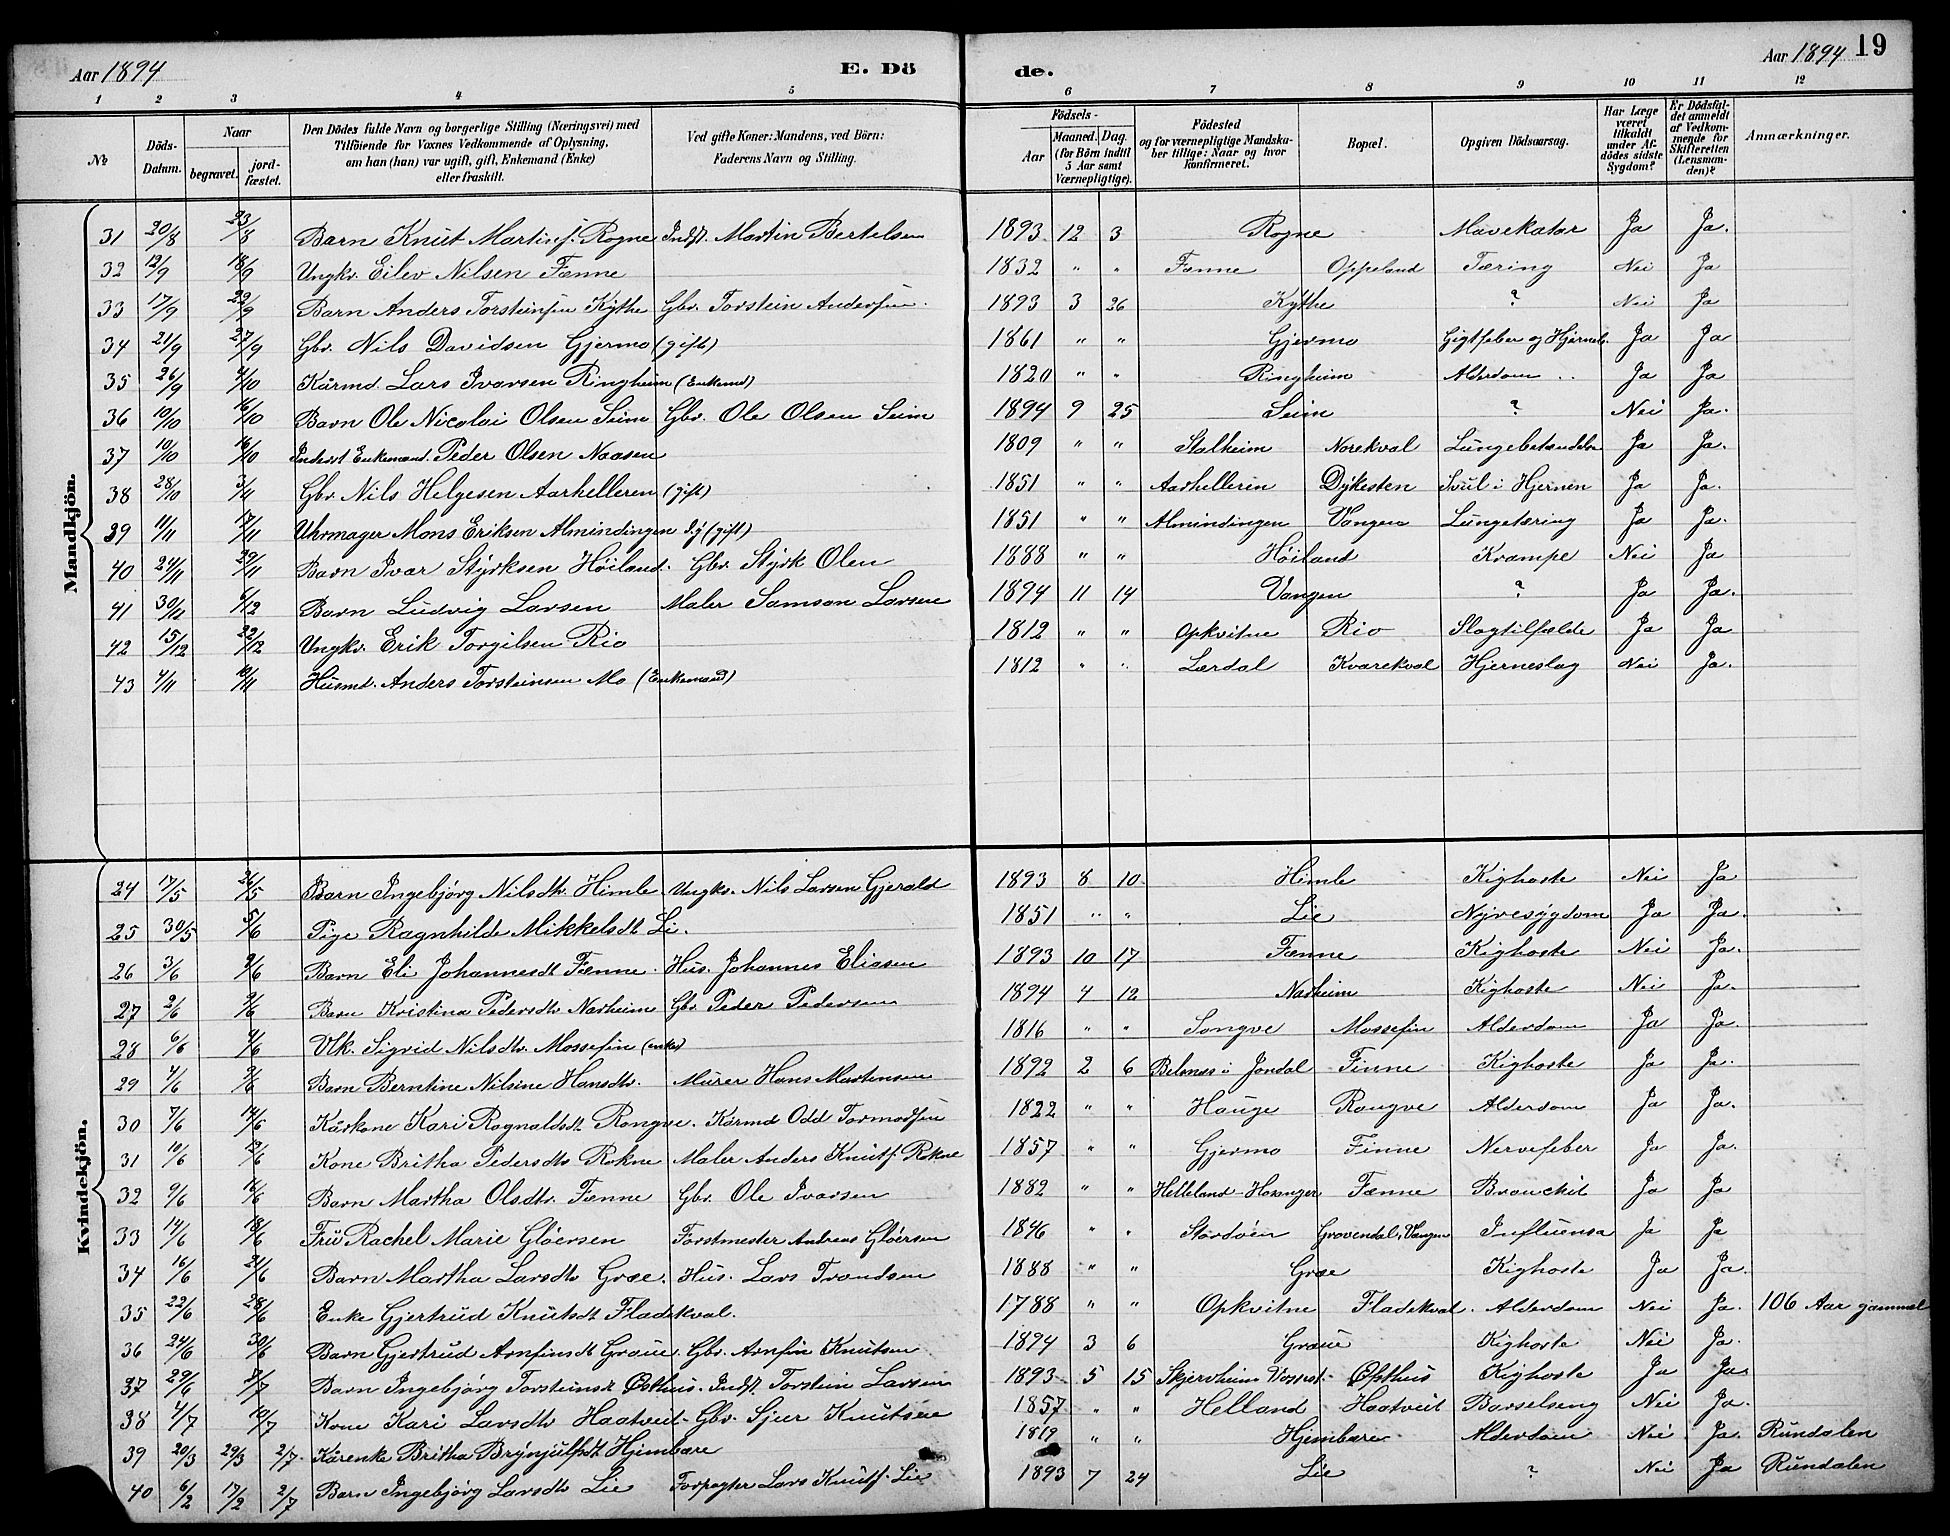 Aar 1894 E. Dö de. Aar 1894 19
1 2 3 4 5 6 7 8 9 10 11 12
No Döds-Datum. Naar begravet. jord-fæstet. Den Dödes fulde Navn og borgerlige Stilling (Næringsvei) med Tilföiende for Voxnes Vedkommende af Oplysning, om han (hun) var ugift, gift, Enkemand (Enke) eller fraskilt. Ved gifte Koner: Mandens, ved Börn: Faderens Navn og Stilling. Födsels- Aar Maaned. Dag. (for Börn indtil 5 Aar samt Værnepligtige). Födested og for værnepligtige Mandskaber tillige: Naar og hvor konfirmeret. Bopæl. Opgiven Dödsaarsag. Har Læge været tilkaldt under Afdödes sidste Sygdom? Er Dödsfaldet anmeldt af Vedkommende for Skifteretten (Lensmanden)? Anmærkninger.
Mandkjön.
31 20/8 23/8 Barn Knut Martinsf. Rogne Indst. Martin Bertelsen 1893 12 3 Rogne Mavekatar Ja Ja.
32 12/9 18/9 Ungkv. Eilev Nilsen Fænne 1832 " " Fænne Oppeland Tæring Nei Ja
33 17/9 22/9 Barn Anders Torsteinsen Kythe Gbr. Torstein Andersen. 1893 3 26 Kythe ? Nei Ja
34 21/9 27/9 Gbr. Nils Davidsen Gjermo (gift) 1861 " " Gjermo Gigtfeber og Hjerneb. Ja Ja
35 26/9 4/10 Kårmd. Lars Ivarsen Ringheim (Enkemd) 1820 " " Ringheim Alderdom Ja Ja
36 10/10 16/10 Barn Ole Nicolai Olsen Seim Gbr. Ole Olsen Seim 1894 9 25 Seim ? Nei Ja.
37 10/10 16/10 Inderst Enkemand. Peder Olsen Naasen 1809 " " Stalheim Norekval Lungebetændelse Ja Ja.
38 28/10 3/4 Gbr. Nils Helgesen Aarhelleren (gift) 1851 " " Aarhelleren Dykesten Svul i Hjernen Ja Ja.
39 11/11 17/11 Uhrmager Mons Eriksen Almindingen (gift) 1851 " " Almindingen Vangen Lungetæring Ja Ja.
40 24/11 29/11 Barn Ivar Styrksen Höiland. Gbr. Styrk Olen 1888 " " Höiland Krampe Nei Ja
41 30/12 6/12 Barn Ludvig Larsen Maler Samson Larsen 1894 11 14 Vangen ? Ja Ja.
42 15/12 22/12 Ungkv. Erik Torgilsen Rio 1812 " " Opkvitne Rio Slagtilfælde Ja Ja
43 4/11 10/11 Husmd. Anders Torsteinsen Mo (Enkemand) 1812 " " Lærdal Kvarekval Hjerneslag Nei Ja.
Kvindekjön.
24 17/5 26/5 Barn Ingebjörg Nilsdtr. Himle Ungkv. Nils Larsen Gjerald 1893 8 10 Himle Kighoste Nei Ja
25 30/5 5/6 Pige Ragnhilde Mikkelsdt Li. 1851 " " Lie Nyresygdom Ja Ja.
26 3/6 9/6 Barn Eli Johannesdt Fænne. Hus. Johannes Eliasen 1893 10 17 Fænne Kighoste Nei Ja.
27 2/6 9/6 Barn Kristina Pedersdtr Narheim Gbr Peder Pedersen 1894 4 12 Narheim Kighoste Nei Ja.
28 6/6 9/6 Vlk. Sigrid Nilsdtr. Mossefin (enke) 1816 " " Songve Mossefin Alderdom Ja Ja.
29 4/6 9/6 Barn Berntine Nilsine Hansdtr. Murer Hans Martinsen 1892 2 6 Belsnæs i Jondal Finne Kighoste Ja Ja.
30 7/6 14/6 Kårkone Kari Ragnaldsdt Rongve. Kårmd Odd Tormodsen 1822 " " Hauge Rongve Alderdom Ja Ja.
31 10/6 12/6 Kone Britha Pedersdtr Rokne Maler Anders Knutsf. Rokne 1857 " " Gjermo Finne Nervefeber Ja Ja.
32 9/6 16/6 Barn Martha Olsdtr. Fænne Gbr. Ole Ivarsen 1882 " " Helleland-Havanger Fænne Bronchit Ja Ja
33 14/6 18/6 Frü Rachel Marie Glöersen Forstmester Andreas Glöersen 1846 " " Stordöen Grovendal, Vangen Influensa Ja Ja
34 16/6 21/6 Barn Martha Larsdtr Græe. Hus. Lars Trondsen 1888 " " Græe Kighoste Ja Ja.
35 22/6 28/6 Enke Gjertrud Knutsdt Fladekval. 1788 " " Opkvitne Fladekval. Alderdom Nei Ja. 106 Aar gammel
36 24/6 30/6 Barn Gjertrud Arnfinsdt Graue. Gbr. Arnfin Knutsen 1894 3 6 Graue Kighoste Nei Ja.
37 29/6 3/7 Barn Ingebjörg Torsteinsdt Østhus. Indst. Torstein Larsen 1893 5 15 Skjervheim Vossest. Østhus Kighoste Ja Ja.
38 4/7 10/7 Kone Kari Larsdtr Haatveit - Gbr. Sjur Knutsen 1857 " " Helland Haatveit Barselseng Nei Ja.
39 20/3 29/3 2/7 Kårenke Britha Brynjulfsdt Hjembare 1819 " " Hjembare Alderdom Nei Ja. Rundalen
40 6/2 17/2 2/7 Barn Ingebjörg Larsdtr Lie Forpagter Lars Knutsf. Lie 1893 7 24 Lie ? Nei Ja Rundalen